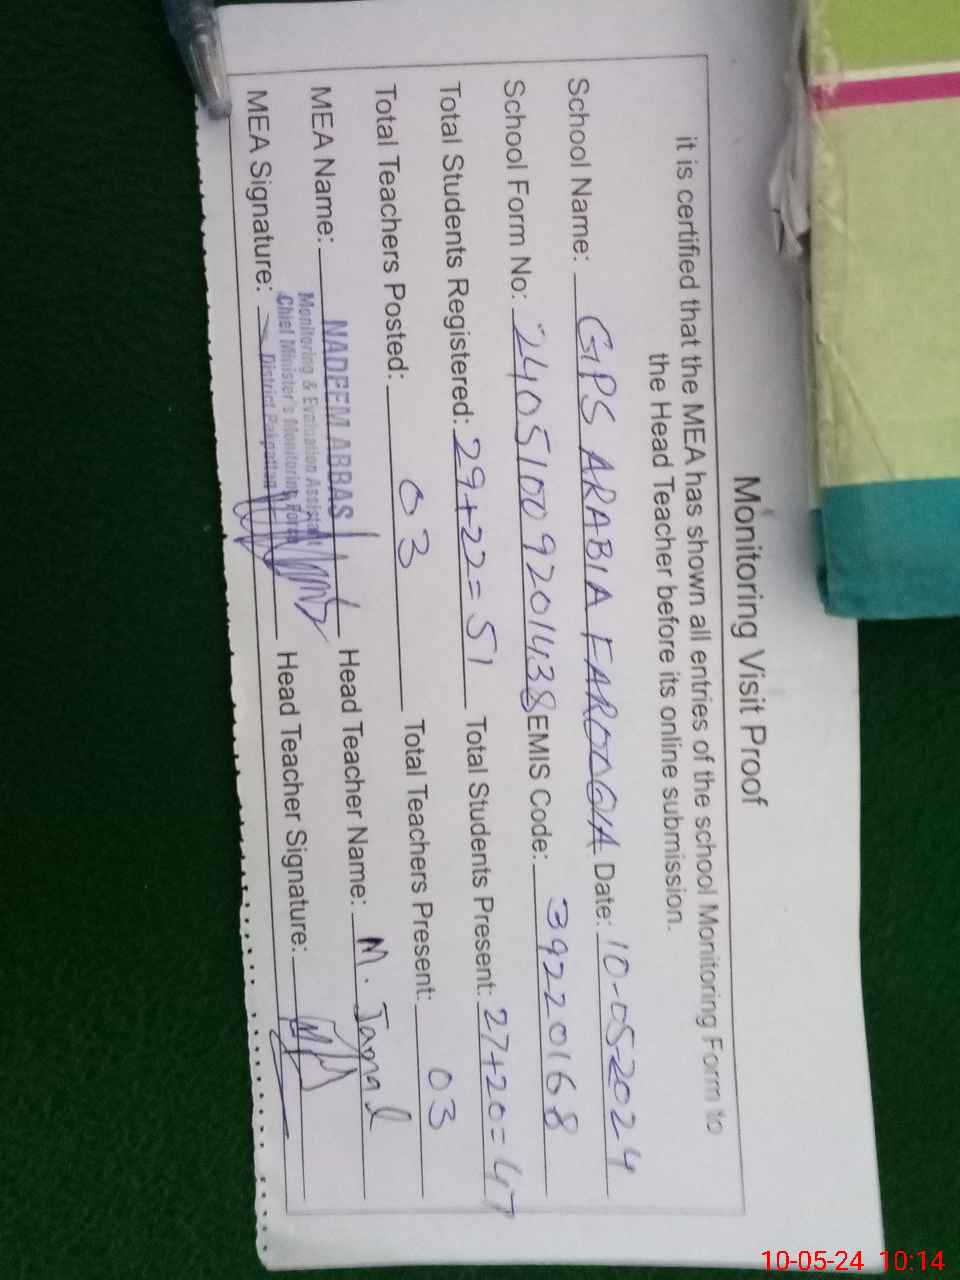 Monitoring Visit Proof
it is certified that the MEA has shown all entries of the school Monitoring Form to
the Head Teacher before its online submission.
School Name: GPS ARABIA FAROOQIA Date: 10-05-2024
School Form No: 24051009201438 EMIS Code: 39220168
Total Students Registered: 29+22=51 Total Students Present: 27+20=47
Total Teachers Posted: 03 Total Teachers Present: 03
MEA Name: NADEEM ABBAS Head Teacher Name: M. Jamal
Monitoring & Evaluation Assistant
Chief Minister's Monitoring Force
District Pakpattan
MEA Signature: Head Teacher Signature:
10-05-24 10:14